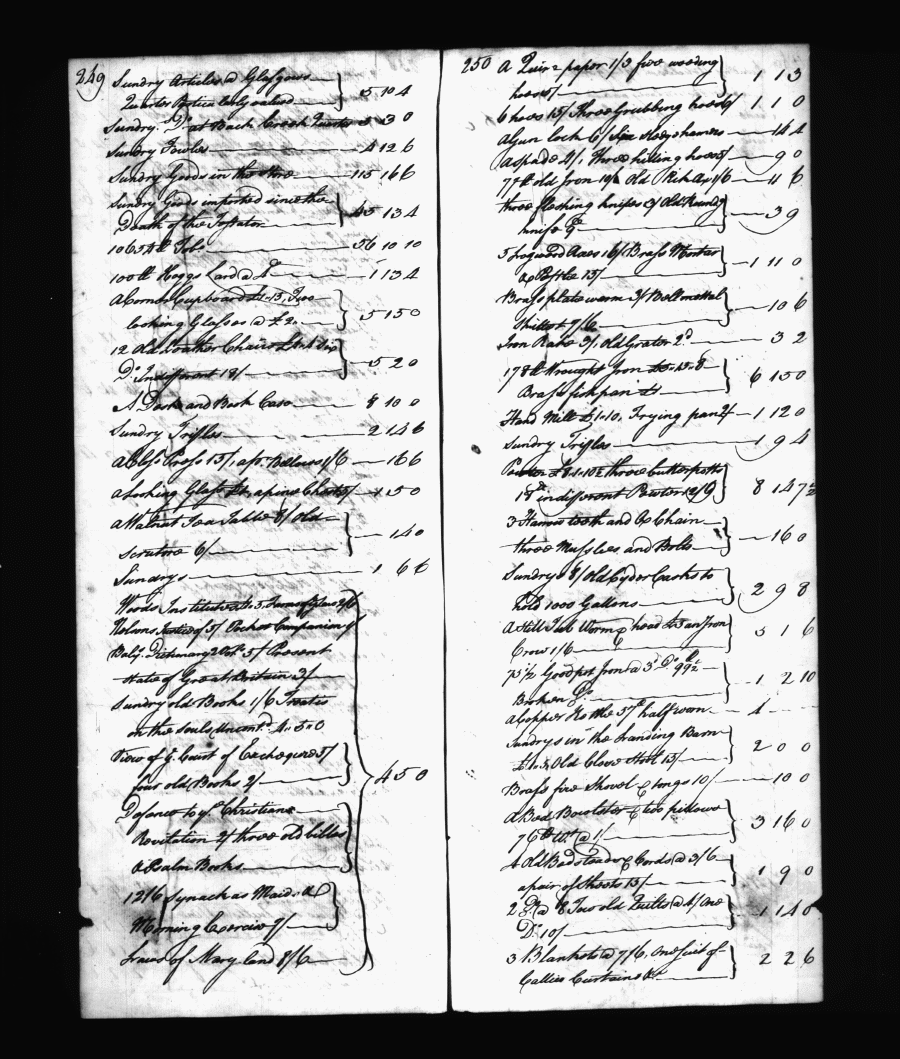 249
Sundry Articles @ Glasgows
Quarter Particularly valued 5 10 4
Sundry Do. at Back Creek Quarter 5 3 0
Sundry Fowles 4 12 6
Sundry Goods in the Store 115 16 6
Sundry Goods imported since the
Death of the Testator 45 13 4
10654 lb Tobo. 56 10 10
100 lb Hoggs Lard @ 4d 1 13 4
A Corner Cupboard £1.15, Two
looking Glasses @ £2 5 15 0
12 Old Leather Chairs £4.4 Six
Do. Indifferent 18/ 5 2 0
A Desk and Book Case 8 10 0
Sundry Trifles 2 14 6
a Closs Press 15/, a pr. Bellows 1/6 16 6
a Looking Glass £1, a pine Chest 5/ 1 5 0
a Walnut Tea Table 8/ Old
Scrutore 6/ 14 0
Sundrys 1 6 6
Woods Institutes
Nelsons Justice 5/ Pocket Companion
Baly. Dictionary 2 Vols. 5/ Present
State of Great Britain 3/
Sundry old Books 1/6 Treatis
on the Souls 4..5..0
View of ye. Court of Exchequer 5/
four old Books 2/
Defence to ye. Christian
Revitation 2/ three old bibles
a Psalm Book
12/6 Synach as Maid
Morning Exercise 7/
Laws of Mary Land 8/6
4 5 0
250
A Quire paper 1/3 five weeding
hoes 1 1 3
6 hoes 15/ Three Grubbing hoes 6/ 1 1 0
A Gun lock 6/ Sheep shamers 14 4
A Spade 4/, three hilling hoes 5/ 9 0
77 lb old Iron 10/ Old Pick Ax 1/6 11 6
three fleshing knifes 3/ Old Round
knife 9d 3 9
5 Logwood Axes 16/ Brass Mortar
& Pestle 15/ 1 11 0
Brass plate warm 3/ Bellmettal
Skillet 7/6 10 6
Iron Rake 3/, old Grater 2d 3 2
178 lb Wrought Iron £5..15..8
Brass fish pan £1 6 15 0
Hand Mill £1.10, Frying pan 2/ 1 12 0
Sundry Trifles 1 9 4
Pewter £8.1.10½ three butter potts
18 lb indifferent Pewter 12/9 8 14 7½
3 Harrow tooth and Ox Chain
three Mussles, and Bolts 16 0
Sundrys 8/ old Cyder Casks to
hold 1000 Gallons 2 9 8
A Still Tub Worm & head £5 an Iron
Crow 1/6 5 1 6
75½ Good pot Iron @ 3d Do. 99½
Broken Do. 1 2 10
A Copper Kettle 37 lb half worn 4
Sundrys in the Landing Barn
£1..5, Old Clove Still 15/ 2 0 0
Brass fire Shovel & tongs 10/ 10 0
A Bed Boulster & two pillows
76 lb Wt. @ 1/ 3 16 0
4 Old Bedsteads & Cords @ 3/6
a pair of Sheets 15/ 1 9 0
2 Do. @ 8 Two old Quilts @ 4/ One
Do. 10/ 1 14 0
3 Blankets @ 7/6, one Suit of
Callico Curtains 2 2 6